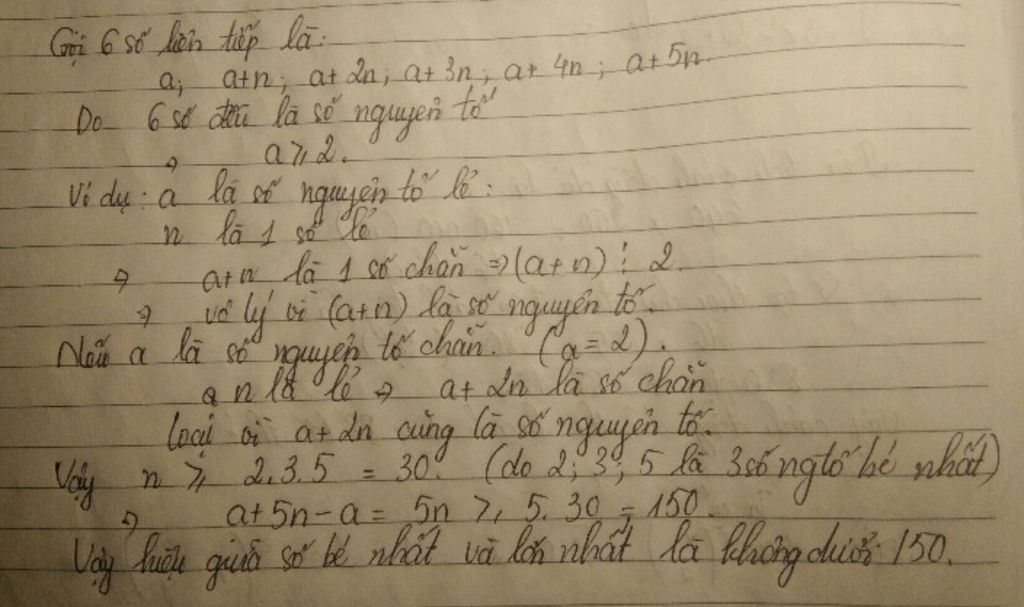 Gọi 6 số liên tiếp là:
a; a+n; a+2n; a+3n; a+4n; a+5n.
Do 6 số đều là số nguyên tố
⇒ a ⩾ 2.
Ví dụ: a là số nguyên tố lẻ:
n là 1 số lẻ
⇒ a+n là 1 số chẵn ⇒ (a+n) ⋮ 2.
⇒ vô lý vì (a+n) là số nguyên tố.
Nếu a là số nguyên tố chẵn. (a=2).
n là lẻ ⇒ a+2n là số chẵn
loại vì a+2n cũng là số nguyên tố.
Vậy n ⩾ 2.3.5 = 30. (do 2; 3; 5 là 3 số ngtố bé nhất)
⇒ a+5n-a = 5n ⩾ 5.30 = 150.
Vậy hiệu giữa số bé nhất và lớn nhất là không dưới 150.